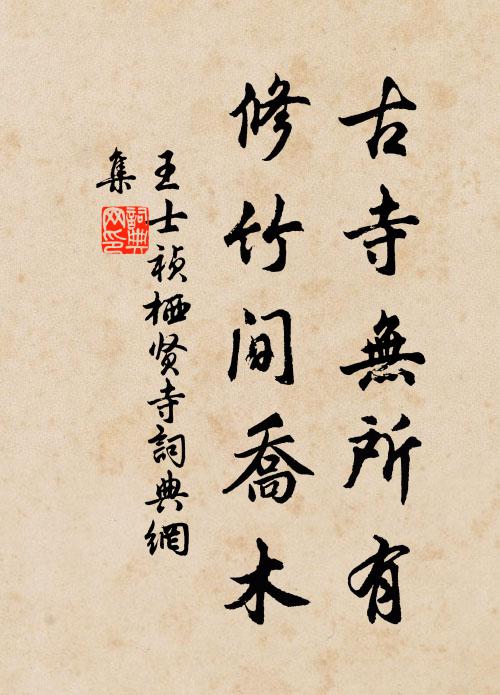 古寺無所有
修竹間喬木
王士禎栖賢寺詞典網
集
詞典
网印